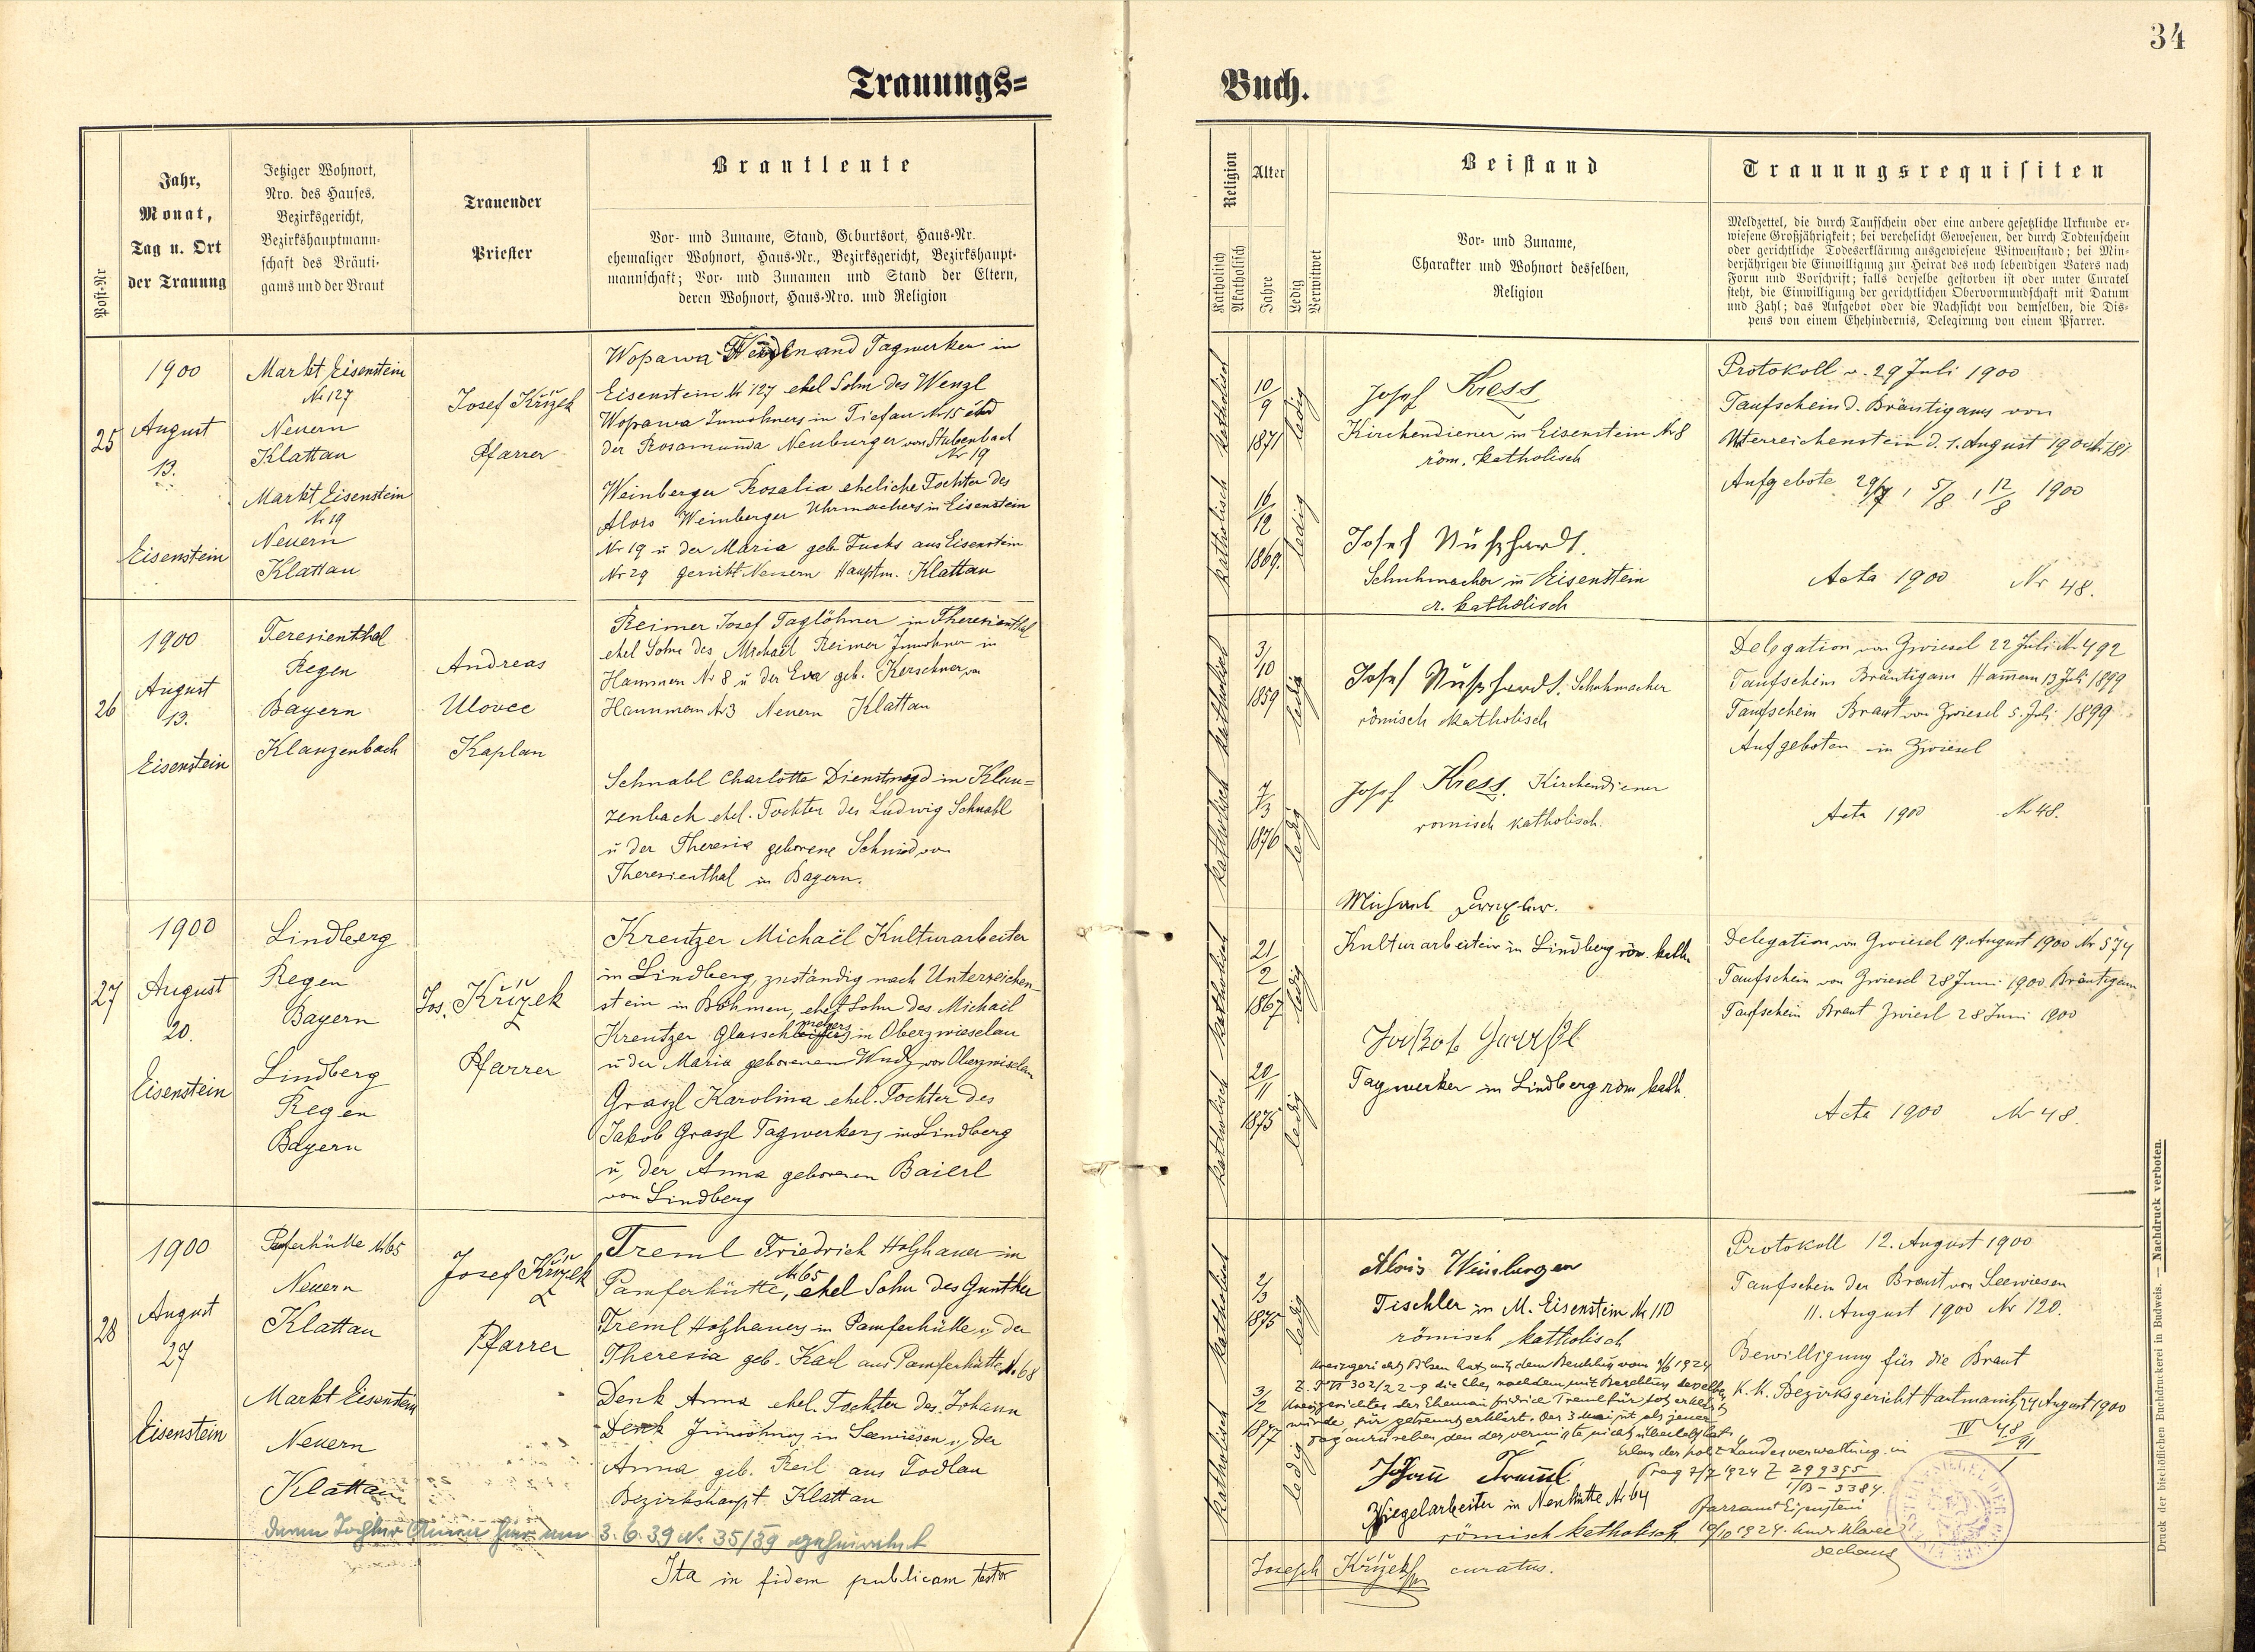 34
Trauungs=
Buch.
Post-Nr
Jahr,
Monat,
Tag u. Ort
der Trauung
Jetziger Wohnort,
Nro. des Hauses,
Bezirksgericht,
Bezirkshauptmann-
schaft des Bräuti-
gams und der Braut
Trauender
Priester
Brautleute
Vor- und Zuname, Stand, Geburtsort, Haus-Nr.
ehemaliger Wohnort, Haus-Nr., Bezirksgericht, Bezirkshaupt-
mannschaft; Vor- und Zunamen und Stand der Eltern,
deren Wohnort, Haus-Nro. und Religion
Religion
Katholisch
Akatholisch
Alter
Jahre
Ledig
Verwitwet
Beistand
Vor- und Zuname,
Charakter und Wohnort desselben,
Religion
Trauungsrequisiten
Meldzettel, die durch Taufschein oder eine andere gesetzliche Urkunde er-
wiesene Großjährigkeit; bei verehelicht Gewesenen, der durch Todtenschein
oder gerichtliche Todeserklärung ausgewiesene Witwenstand; bei Min-
derjährigen die Einwilligung zur Heirat des noch lebendigen Vaters nach
Form und Vorschrift; falls derselbe gestorben ist oder unter Curatel
steht, die Einwilligung der gerichtlichen Obervormundschaft mit Datum
und Zahl; das Aufgebot oder die Nachsicht von demselben, die Dis-
pens von einem Ehehindernis, Delegirung von einem Pfarrer.
25
1900
August
13.
Eisenstein
Markt Eisenstein
Nr 127
Neuern
Klattau
Markt Eisenstein
Nr 19
Neuern
Klattau
Josef Křížek
Pfarrer
Wopawa Tagwerker in
Eisenstein Nr 127 ehel Sohn des Wenzl
Wopawa Inwohners in Tiefau Nr 15 und
der Rosamunda Neuburger von Stubenbach
Nr 19
Weinberger Rosalia eheliche Tochter des
Alois Weinberger Uhrmachers in Eisenstein
Nr 19 u der Maria geb Fuchs aus Eisenstein
Nr 29 gericht Neuern Hauptm. Klattau
katholisch
10/9 1871
ledig
katholisch
16/12 1869.
ledig
Josef Kress
Kirchendiener in Eisenstein Nr 8
röm. katholisch
Josef Nußhardt.
Schuhmacher in Eisenstein
r. katholisch
Protokoll v. 29 Juli 1900
Taufschein d. Bräutigams von
Unterreichenstein d. 1. August 1900
Aufgebote 29/7, 5/8, 12/8 1900
Acta 1900 Nr 48.
26
1900
August
13.
Eisenstein
Teresienthal
Regen
Bayern
Klauzenbach
Andreas
Ulovec
Kaplan
Reimer Josef Taglöhner in Theresienthal
ehel Sohn des Michael Reimer Inwohner in
Hammern Nr 8 u der Eva geb. Kerschner von
Hammern Nr 3 Neuern Klattau
Schnabl Charlotte Dienstmagd in Klau=
zenbach ehel. Tochter des Ludwig Schnabl
u der Theresia geborene Schmid von
Theresienthal in Bayern.
katholisch
3/10 1859
ledig
katholisch
7/3 1876
ledig
Josef Nußhardt. Schuhmacher
römisch katholisch
Josef Kress. Kirchendiener
römisch katholisch.
Delegation von Zwiesel 22 Juli Nr 492
Taufschein Bräutigam Hamern 13 Juli 1899
Taufschein Braut von Zwiesel 5. Juli 1899
Aufgeboten in Zwiesel
Acta 1900 Nr 48.
27
1900
August
20.
Eisenstein
Lindberg
Regen
Bayern
Lindberg
Regen
Bayern
Jos. Křížek
Pfarrer
Kreutzer Michaël Kulturarbeiter
in Lindberg, zuständig nach Unterreichen-
stein in Böhmen, ehel Sohn des Michael
Kreutzer in Oberzwieselau
u der Maria geborenen von Oberzwieselau
Graszl Karolina ehel. Tochter des
Jakob Graszl Tagwerkers in Lindberg
u, der Anna geborenen Baierl
von Lindberg
katholisch
21/2 1867
ledig
katholisch
20/11 1875
ledig
Michael
Kulturarbeiter in Lindberg röm. kath.
Jakob
Tagwerker in Lindberg röm kath.
Delegation von Zwiesel 19. August 1900 Nr 574
Taufschein von Zwiesel 28 Juni 1900 Bräutigam
Taufschein Braut Zwiesl 28 Juni 1900
Acta 1900 Nr 48.
28
1900
August
27
Eisenstein
Pamferhütte Nr 65
Neuern
Klattau
Markt Eisenstein
Neuern
Klattau
Josef Křížek
Pfarrer
Treml Friedrich Holzhauer in
Nr 65
Pamferhütte, ehel Sohn des Gunther
Treml Holzhauers in Pamferhütte u, der
Theresia geb. Karl aus Pamferhütte Nr. 68
Denk Anna ehel. Tochter des Johann
Denk Inwohners in Seewiesen u, der
Anna geb. Reil aus Todlau
Bezirkshaupt. Klattau
deren Tochter Anna hier am 3.6.39 No. 35/39 geheiratet
katholisch
2/3 1875
ledig
katholisch
3/2 1877
ledig
Alois Weinberger
Tischler in M. Eisenstein Nr 110
römisch katholisch
Kreisgericht Pilsen hat mit dem Beschluß vom 1924
302/22-9 die Ehe, nachdem mit Beschluss desselben
Kreisgerichtes der Ehemann Fridrich Treml für tot erklärt
wurde, für getrennt erklärt. Der 3 Mai ist als jener
Tag anzusehen, den der vermisste nicht überlebt hat.
Erlass der polit. Landesverwaltung in
Prag 7/7 1924 Z 299395
1/B - 3384.
Johann Treml.
Ziegelarbeiter in Neuhütte Nr 64
römisch katholisch
Pfarramt Eisenstein
10/10 1924. Andr. Ulovec
dechant
Protokoll 12. August 1900
Taufschein der Braut von Seewiesen
11. August 1900 Nr 120.
Bewilligung für die Braut
K. K. Bezirksgericht Hartmanitz 24 August 1900
IV 48/91
Ita in fidem publicam testor
Joseph Křížek curatus.
Druck der bischöflichen Buchdruckerei in Budweis. — Nachdruck verboten.